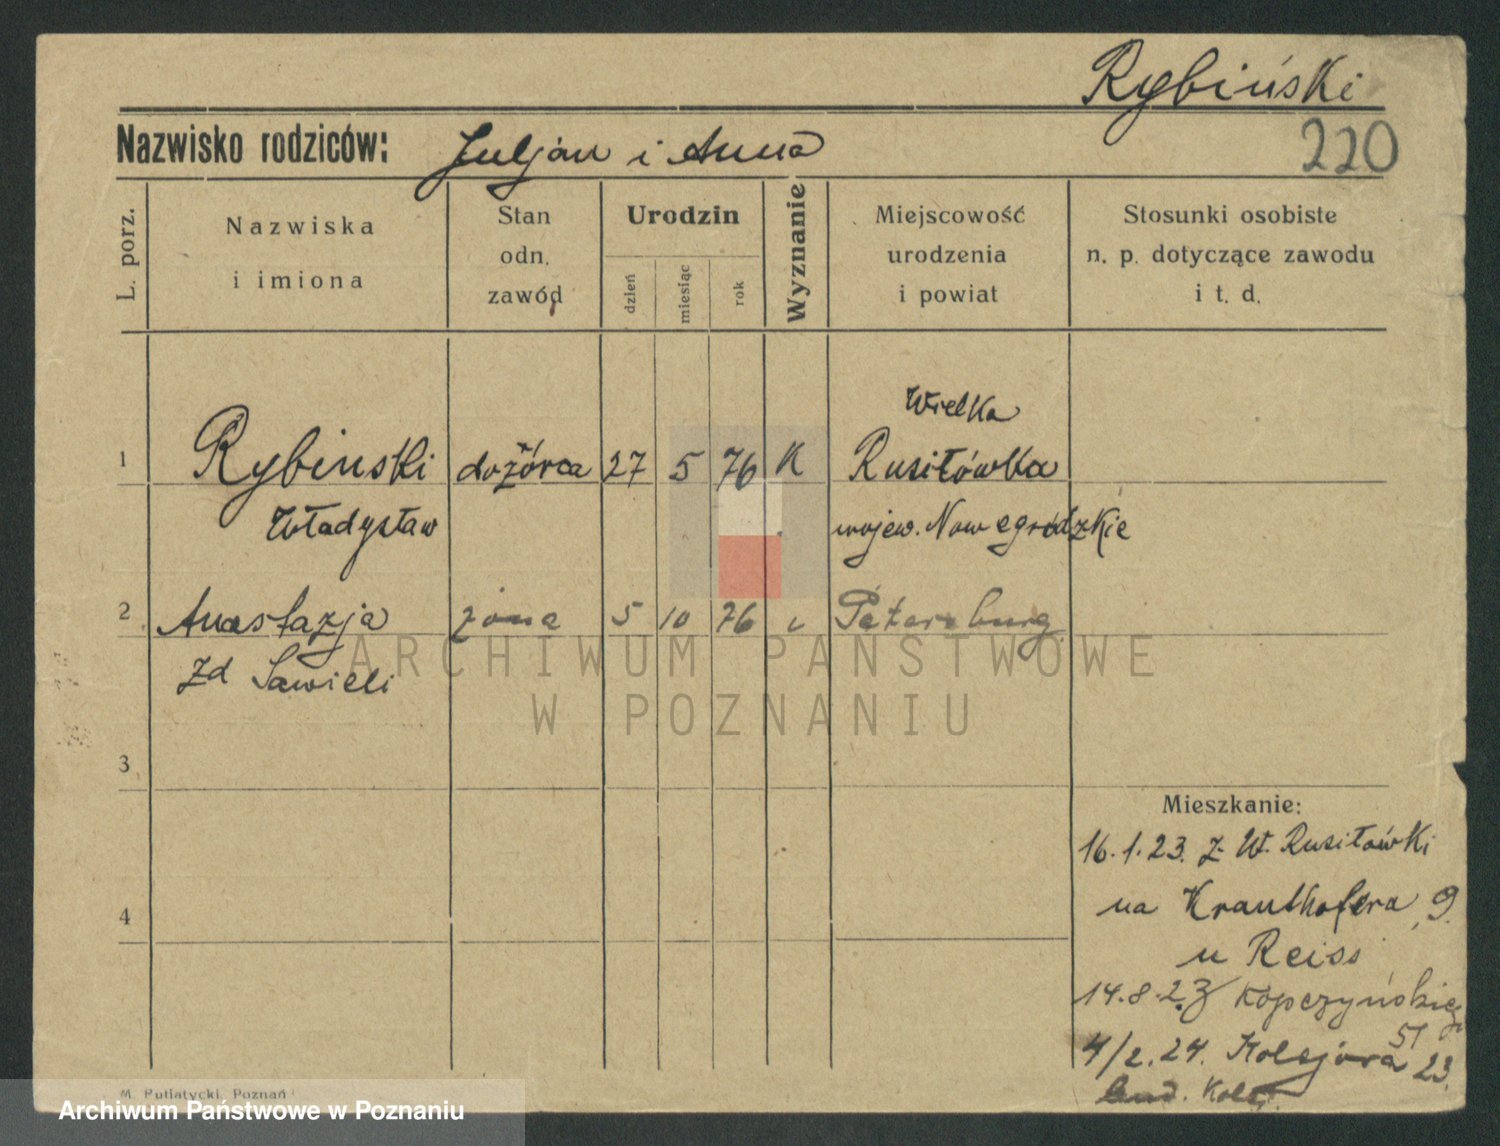 Rybiński
Nazwisko rodziców: Juljan i Anna
220
L. porz.
Nazwiska
i imiona
Stan
odn.
zawód
Urodzin
dzień
miesiąc
rok
Wyznanie
Miejscowość
urodzenia
i powiat
Stosunki osobiste
n. p. dotyczące zawodu
i t. d.
Wielka
1 Rybinski dozórca 27 5 76 K Rusiłówka
Władysław wojew. Nowegródzkie
2 Anastazja żona 5 10 76 Petersburg
zd Sawieli
3
Mieszkanie:
16.1.23. z W. Rusiłówki
4
na Krauthofera 9.
u Reiss
14.8.23 Kopczyńskiego
51
4/2.24. Kolejowa 23.
M. Putiatycki, Poznań
ARCHIWUM PAŃSTWOWE
W POZNANIU
Archiwum Państwowe w Poznaniu